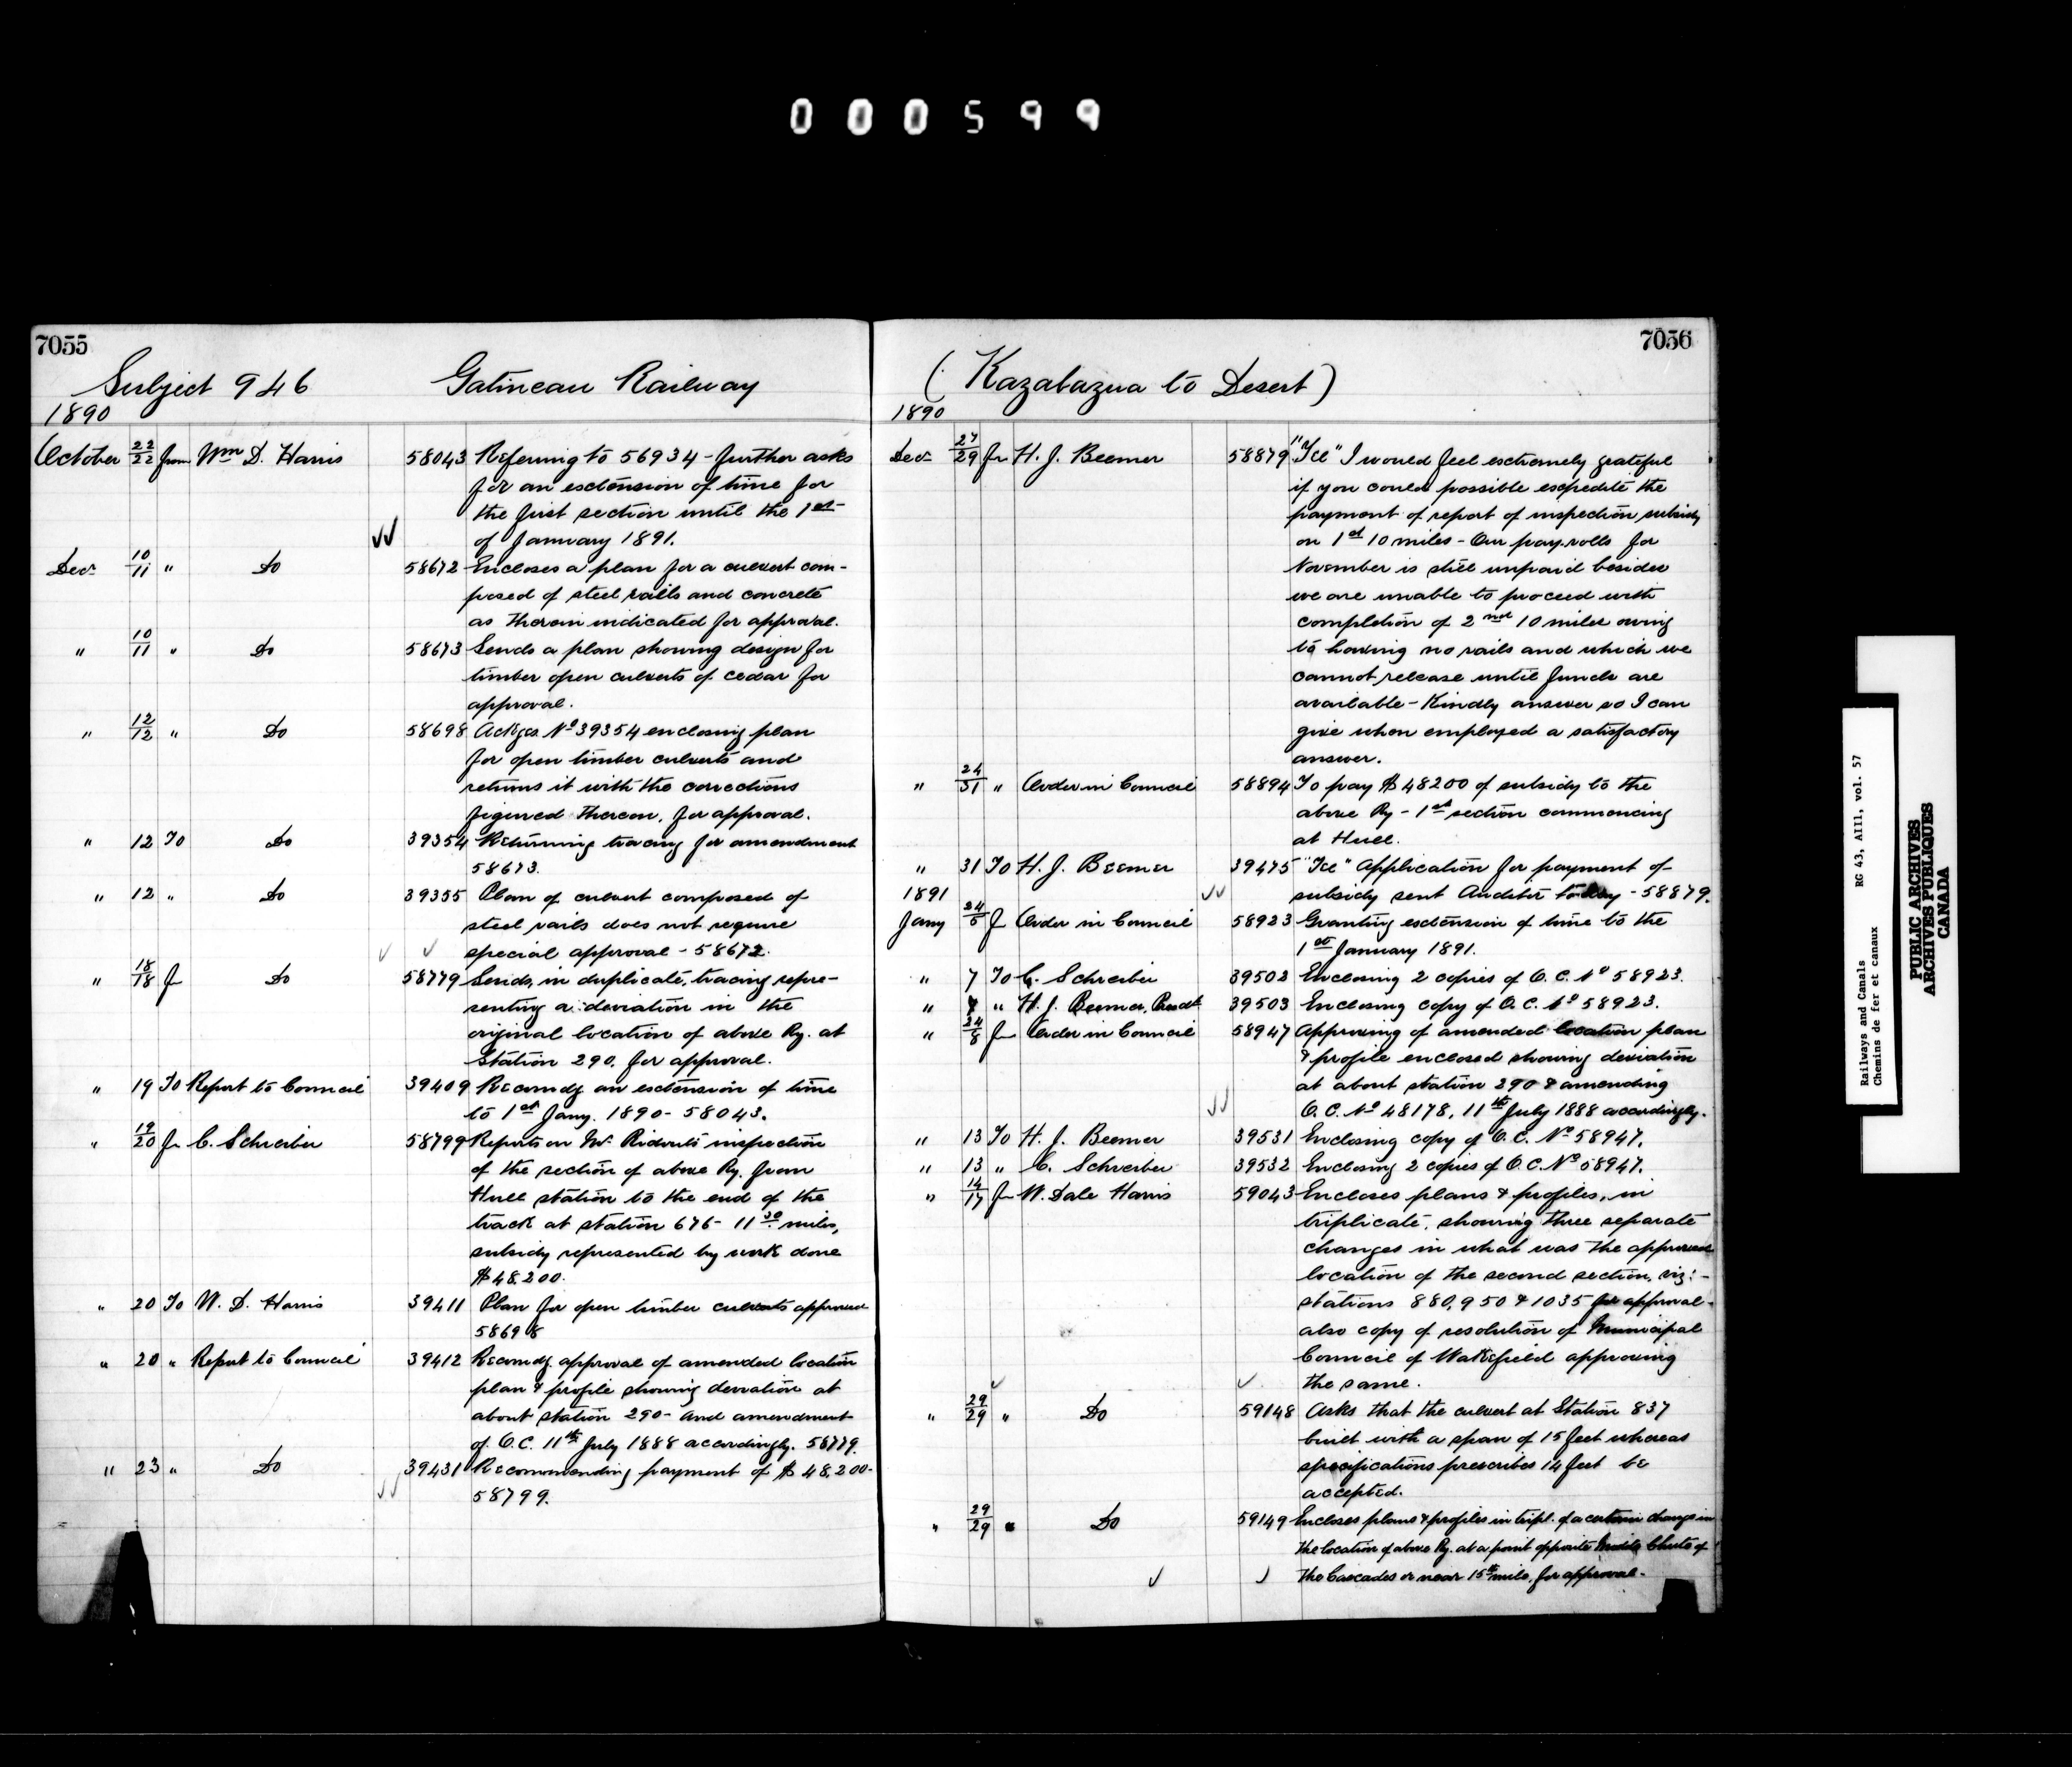 000599
7055
Subject 946 Gatineau Railway
1890
October 22/22 from Wm D. Harris 58043 Refering to 56934 - further asks
for an extension of time for
the first section until the 1st
of January 1891.
Decr 10/11 " Do 58672 Encloses a plan for a culvert com-
posed of steel rails and concrete
as therein indicated for approval.
" 10/11 " Do 58673 Sends a plan showing design for
timber open culverts of cedar for
approval.
" 12/12 " Do 58698 Ackges No 39354 enclosing plan
for open timber culverts and
returns it with the corrections
figured thereon, for approval.
" 12 To Do 39354 Returning tracing for amendment
58673.
" 12 " Do 39355 Plan of culvert composed of
steel rails does not require
special approval - 58672.
" 18/18 fr Do 58779 Sends, in duplicate, tracing repre-
senting a deviation in the
original location of above Ry. at
Station 290, for approval.
" 19 To Report to Council 39409 Recomdg an extension of time
to 1st Jany. 1890 - 58043.
" 19/20 fr C. Schreiber 58799 Reports on Mr. Ridout's inspection
of the section of above Ry. from
Hull station to the end of the
track at station 676 - 11 30 miles,
subsidy represented by work done
$48,200.
" 20 To W. D. Harris 39411 Plan for open timber culverts approved
58698
" 20 " Report to Council 39412 Recomdg. approval of amended location
plan & profile showing deviation at
about station 290 - and amendment
of O.C. 11th July 1888 accordingly. 58779.
" 23 " Do 39431 Recommending payment of $48,200 -
58799.
7056
(Kazabazua to Desert)
1890
Decr 27/29 fr H. J. Beemer 58879 "Tel" I would feel extremely grateful
if you could possible expedite the
payment of report of inspection subsidy
on 1st 10 miles - Our pay-rolls for
November is still unpaid besides
we are unable to proceed with
completion of 2nd 10 miles owing
to having no rails and which we
cannot release until funds are
available - Kindly answer so I can
give when employed a satisfactory
answer.
" 24/31 " Order in Council 58894 To pay $48200 of subsidy to the
above Ry - 1st section commencing
at Hull.
" 31 To H. J. Beemer 39475 "Tel" Application for payment of
1891 subsidy sent Auditor today - 58879.
Jany 24/5 fr Order in Council 58923 Granting extension of time to the
1st January 1891.
" 7 To C. Schreiber 39502 Enclosing 2 copies of O.C. No 58923.
" 7 " H. J. Beemer, Presdt 39503 Enclosing copy of O.C. No 58923.
" 24/8 fr Order in Council 58947 Approving of amended location plan
& profile enclosed showing deviation
at about station 290 & amending
O.C. No 48178, 11th July 1888 accordingly.
" 13 To H. J. Beemer 39531 Enclosing copy of O.C. No 58947.
" 13 " C. Schreiber 39532 Enclosing 2 copies of O.C. No 58947.
" 14/17 fr W. Dale Harris 59043 Encloses plans & profiles, in
triplicate, showing three separate
changes in what was the approved
location of the second section, viz: -
stations 880, 950 & 1035 for approval -
also copy of resolution of Municipal
Council of Wakefield approving
the same.
" 29/29 " Do 59148 Asks that the culvert at Station 837
built with a span of 15 feet whereas
specifications prescribes 14 feet be
accepted.
" 29/29 " Do 59149 Encloses plans & profiles in tripl. of a certain change in
the location of above Ry. at a point opposite Middle Chute of
the Cascades or near 15th mile, for approval -
Railways and Canals RG 43, AIII, vol. 57
Chemins de fer et canaux
PUBLIC ARCHIVES
ARCHIVES PUBLIQUES
CANADA